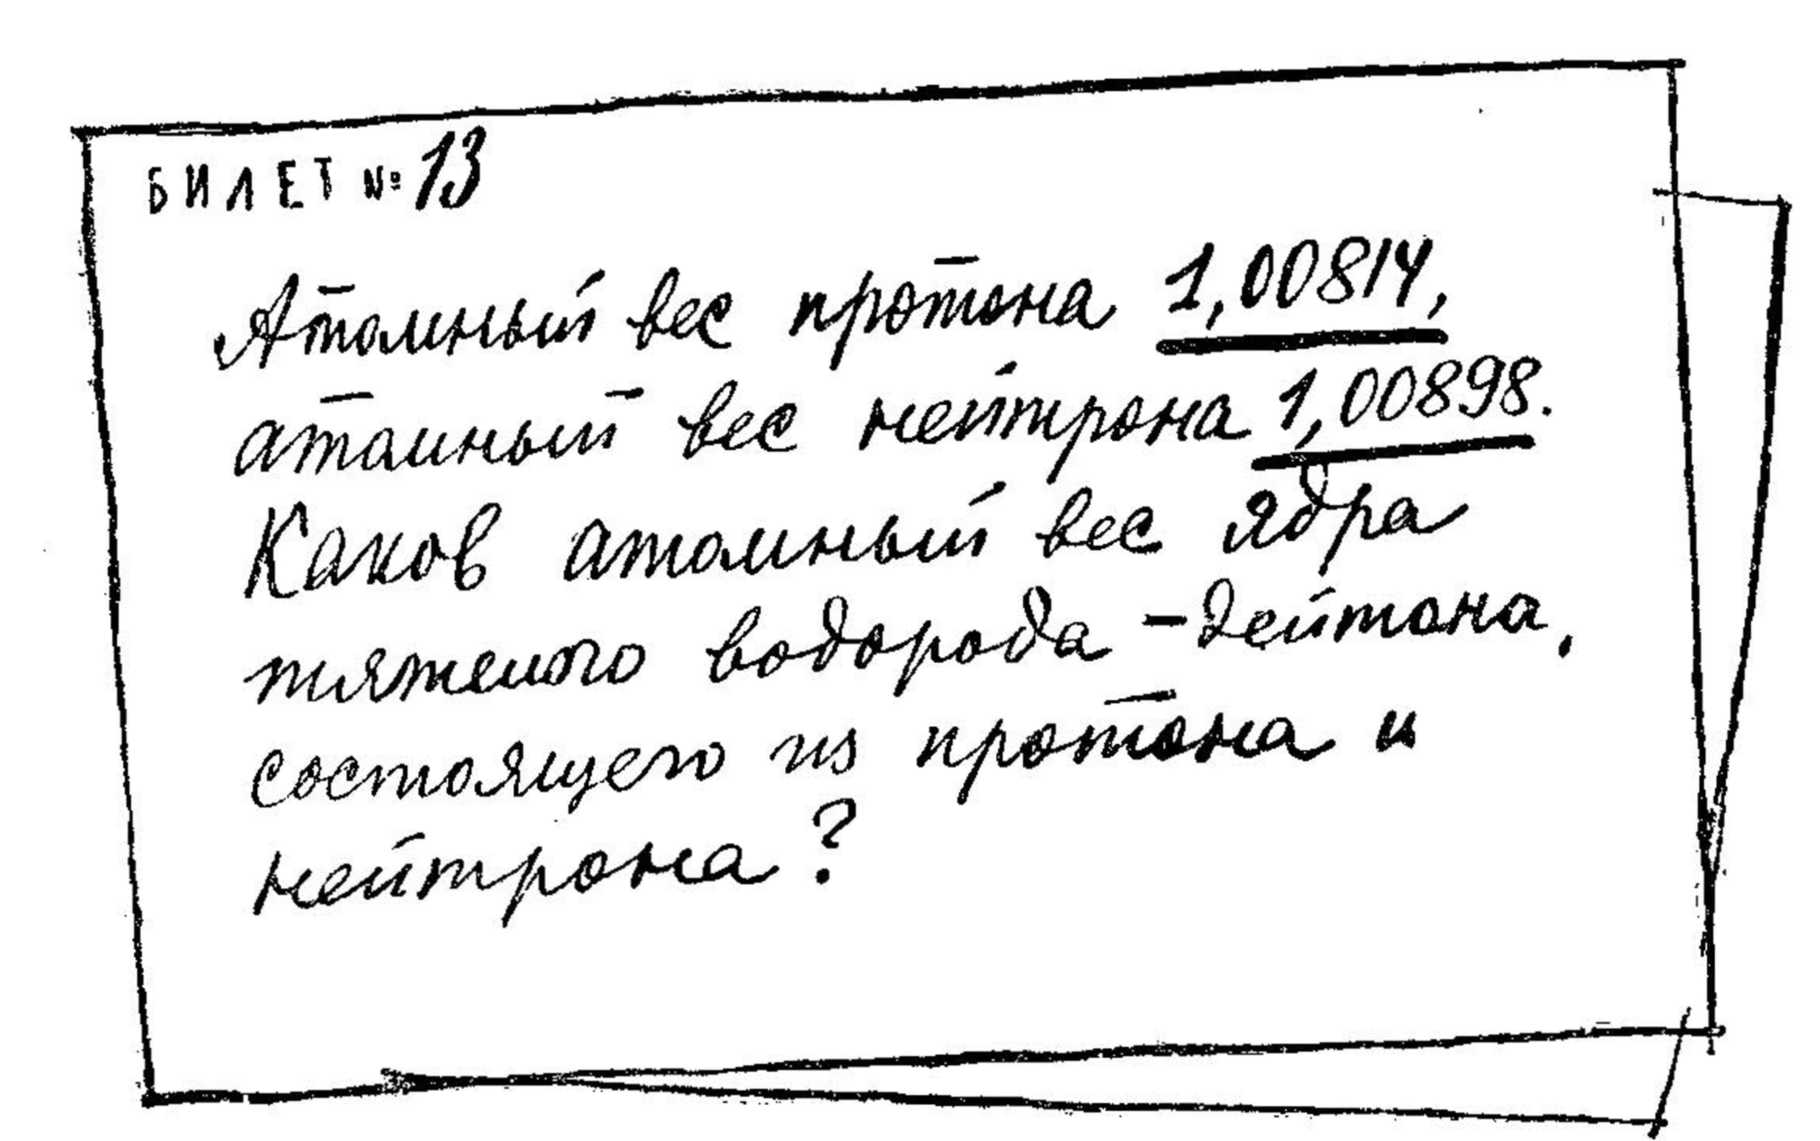 БИЛЕТ № 13
Атомный вес протона 1,00814,
атомный вес нейтрона 1,00898.
Каков атомный вес ядра
тяжелого водорода – дейтона,
состоящего из протона и
нейтрона?